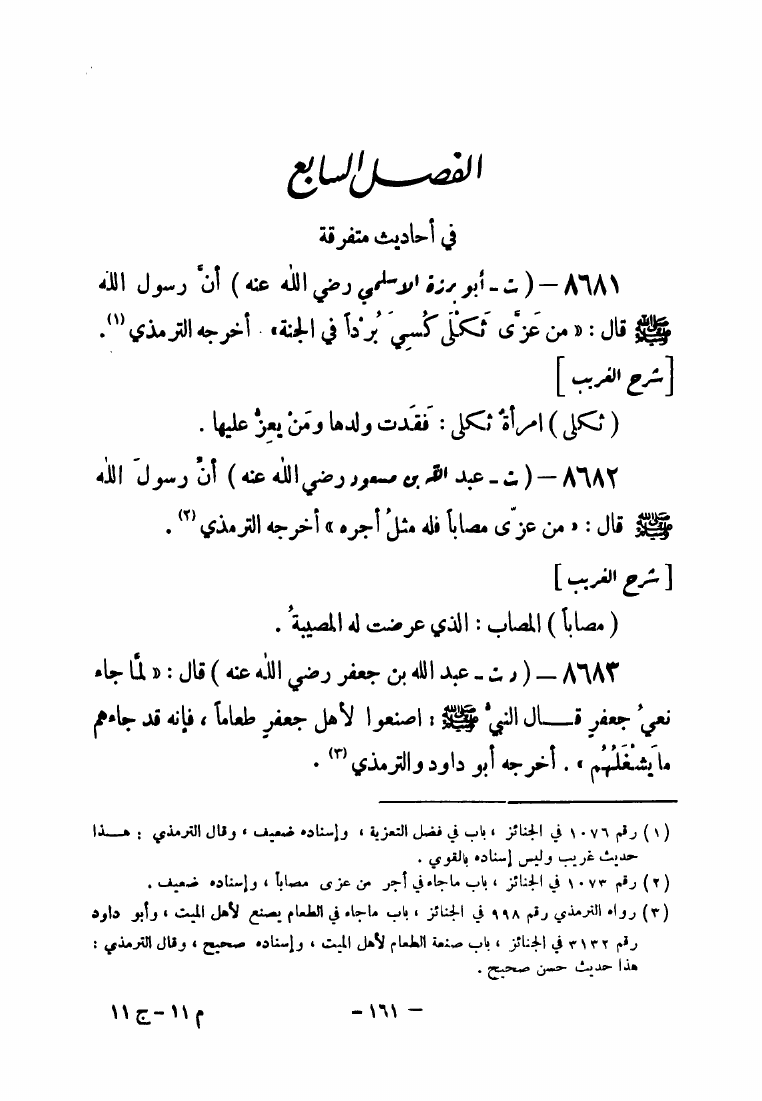 الفصل السابع
في أحاديث متفرقة
٨٦٨١ – ( ت - أبو برزة الأسلمي رضي الله عنه ) أنَّ رسول الله
ﷺ قال : « من عَزَّى ثَكْلَى كُسِيَ بُرْداً في الجنة» . أخرجه الترمذي (١).
[ شرح الغريب ]
( ثكلى ) امرأةٌ ثكلى : فَقَدت ولدها ومَنْ يعِزُّ عليها .
٨٦٨٢ – ( ت - عبد الله بن مسعود رضي الله عنه ) أنَّ رسولَ الله
ﷺ قال : « من عزّى مصاباً فله مثلُ أجره » أخرجه الترمذي (٢) .
[ شرح الغريب ]
( مصاباً ) المصاب : الذي عرضت له المصيبةُ .
٨٦٨٣ – ( د ت - عبد الله بن جعفر رضي الله عنه ) قال : « لمَّا جاء
نعيُ جعفرٍ قـــال النبيُّ ﷺ : اصنعوا لأهل جعفرٍ طعاماً ، فإنه قد جاءهم
ما يَشْغَلُهُم » . أخرجه أبو داود والترمذي (٣) .
(١) رقم ١٠٧٦ في الجنائز ، باب في فضل التعزية ، وإسناده ضعيف ، وقال الترمذي : هـــذا
حديث غريب وليس إسناده بالقوي .
(٢) رقم ١٠٧٣ في الجنائز ، باب ماجاء في أجر من عزى مصاباً ، وإسناده ضعيف .
(٣) رواه الترمذي رقم ٩٩٨ في الجنائز ، باب ماجاء في الطعام يصنع لأهل الميت ، وأبو داود
رقم ٣١٣٢ في الجنائز ، باب صنعة الطعام لأهل الميت ، وإسناده صحيح ، وقال الترمذي :
هذا حديث حسن صحيح .
– ١٦١ –
م ١١ – ج ١١